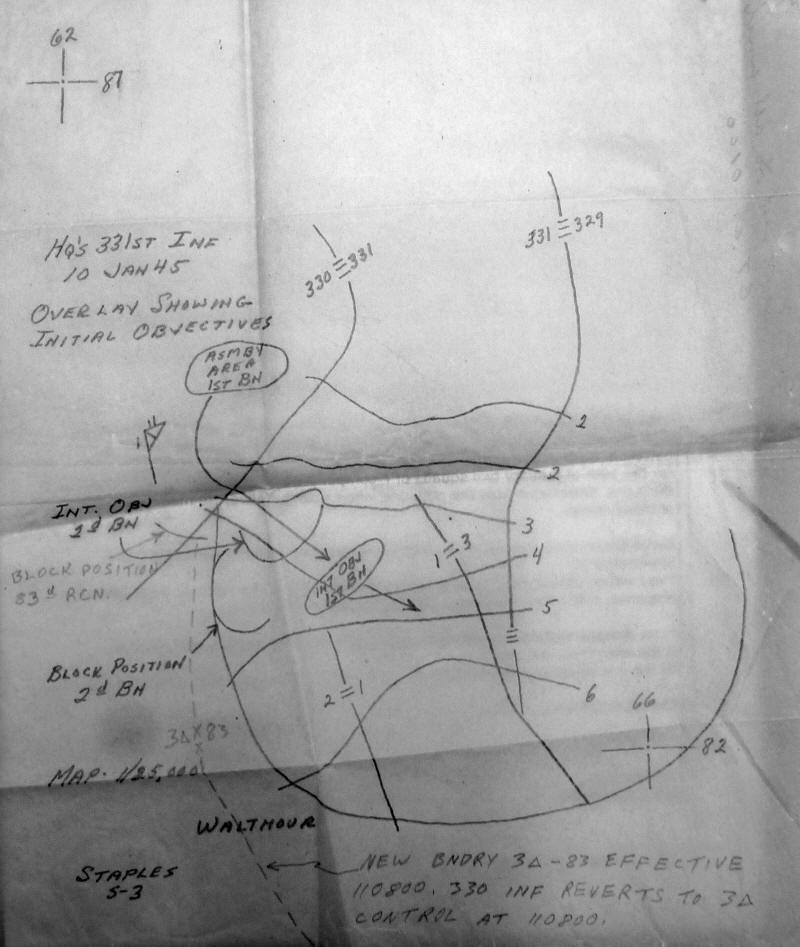 62
87
HQ'S 331ST INF
10 JAN 45
OVERLAY SHOWING
INITIAL OBJECTIVES
330 331
331 329
ASMBY
AREA
1ST BN
2
2
3
4
5
6
INT. OBJ
2d BN
BLOCK POSITION
83d RCN.
1 3
INT OBJ
1ST BN
BLOCK POSITION
2d BN
2 1
3∆ X 83
66
82
MAP. 1/25,000
WALTHOUR
STAPLES
S-3
NEW BNDRY 3∆-83 EFFECTIVE
110800. 330 INF REVERTS TO 3∆
CONTROL AT 110800.